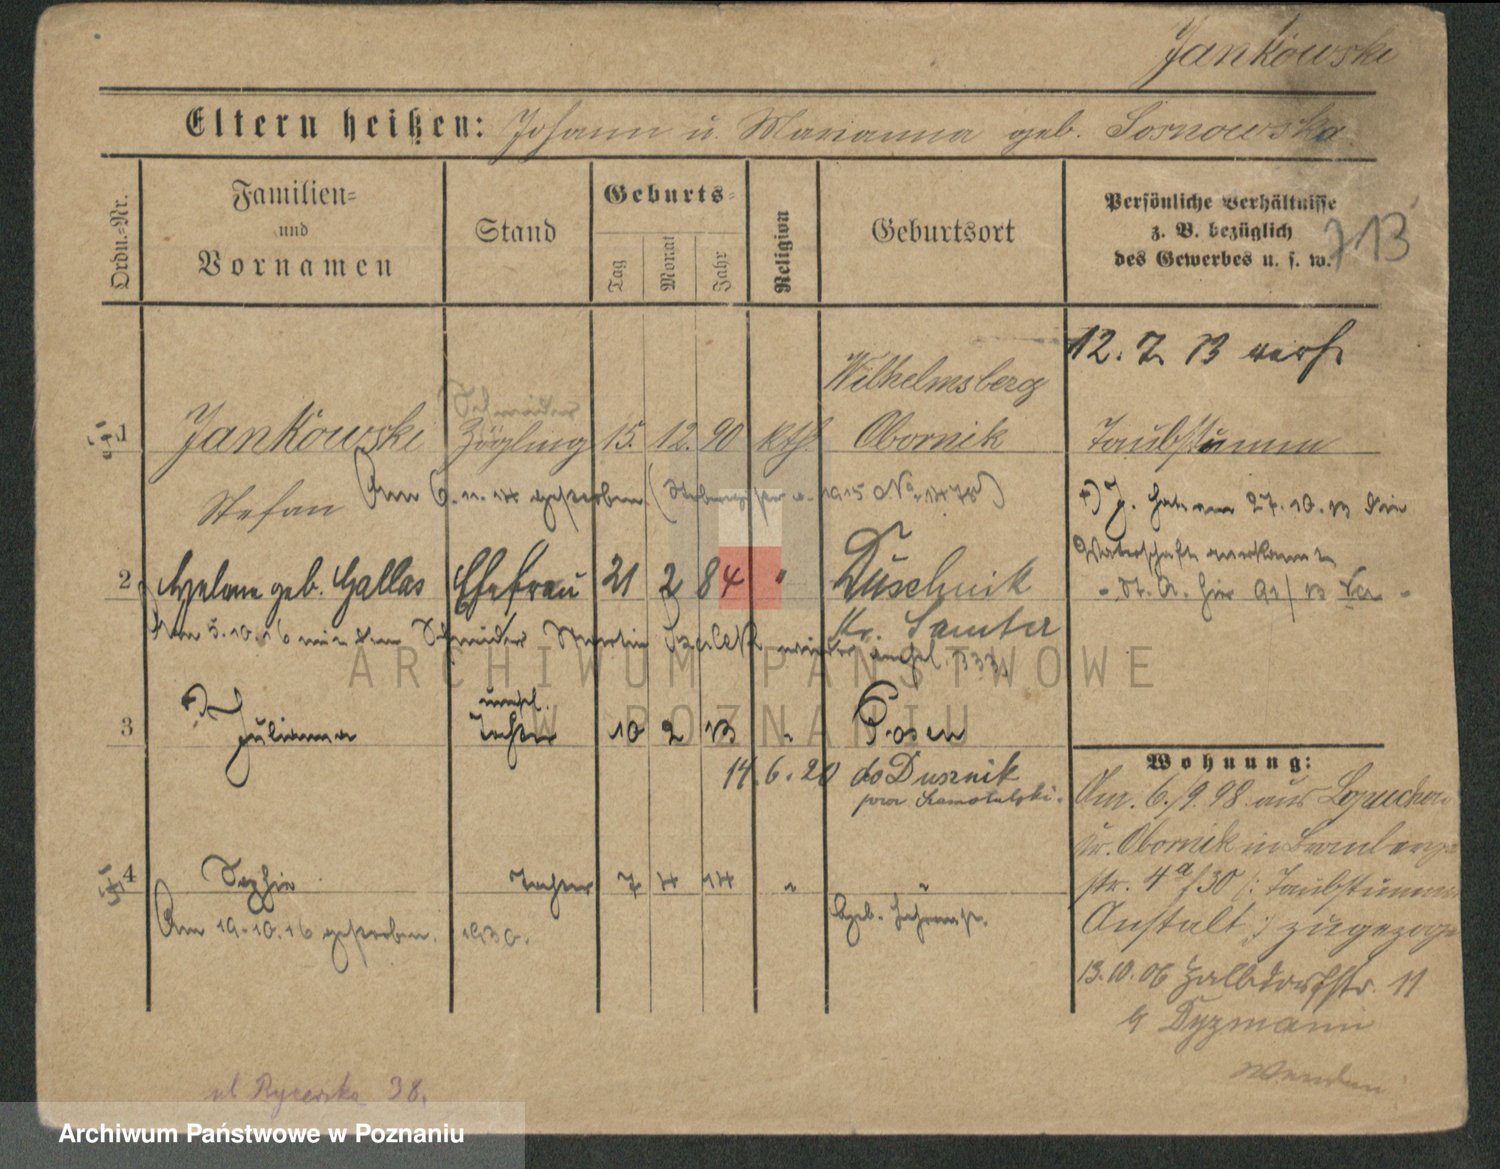 Jankowski
Eltern heißen: Johann u. Marianna geb. Sosnowska
Ordn.-Nr.
Familien- und Vornamen
Stand
Geburts-
Tag
Monat
Jahr
Religion
Geburtsort
Persönliche Verhältnisse
z. B. bezüglich
des Gewerbes u. s. w.
713
12. 7. 13 verh
Wilhelmsberg
1 Jankowski Zögling 15. 12. 90 kth. Obornik Taubstumm
Stefan Am 6. 11. 14 gestorben
J. hat am 27. 10. 13 die
Vaterschaft anerkannt
2 geb. Gallas Ehefrau 21 2 84 " Duschnik
Kr. Samter
Am 5. 10. 16 mit dem Schneider
3 Julianna Tochter 10 2 13 " Posen
14. 6. 20 do Dusznik
pow. Szamotulski.
Wohnung:
Am. 6./9. 98 aus
Kr. Obornik in
str. 4a/30 /: Taubstummen
Anstalt :/ zugezogen
4 Sophie Tochter 7 4 14 " "
Am 19. 10. 16 gestorben.
13. 10. 06 Halbdorfstr. 11
b Dyzmann
ul Rycerska 38.
ARCHIWUM PAŃSTWOWE
W POZNANIU
Archiwum Państwowe w Poznaniu